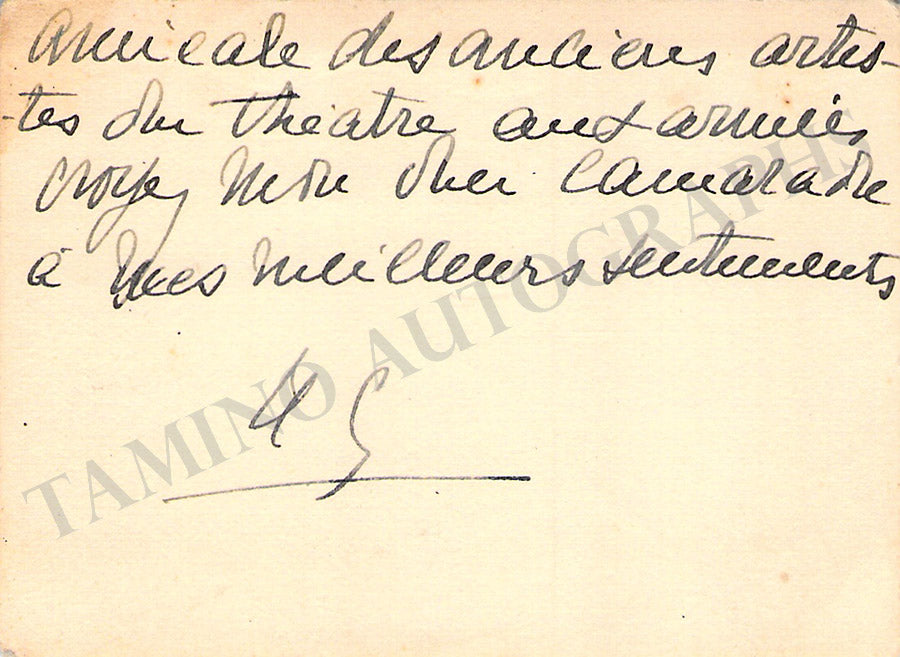 amicale des anciens artis-
-tes du théâtre aux armées
croyez mon cher camarade
à mes meilleurs sentiments
TAMINO AUTOGRAPHS